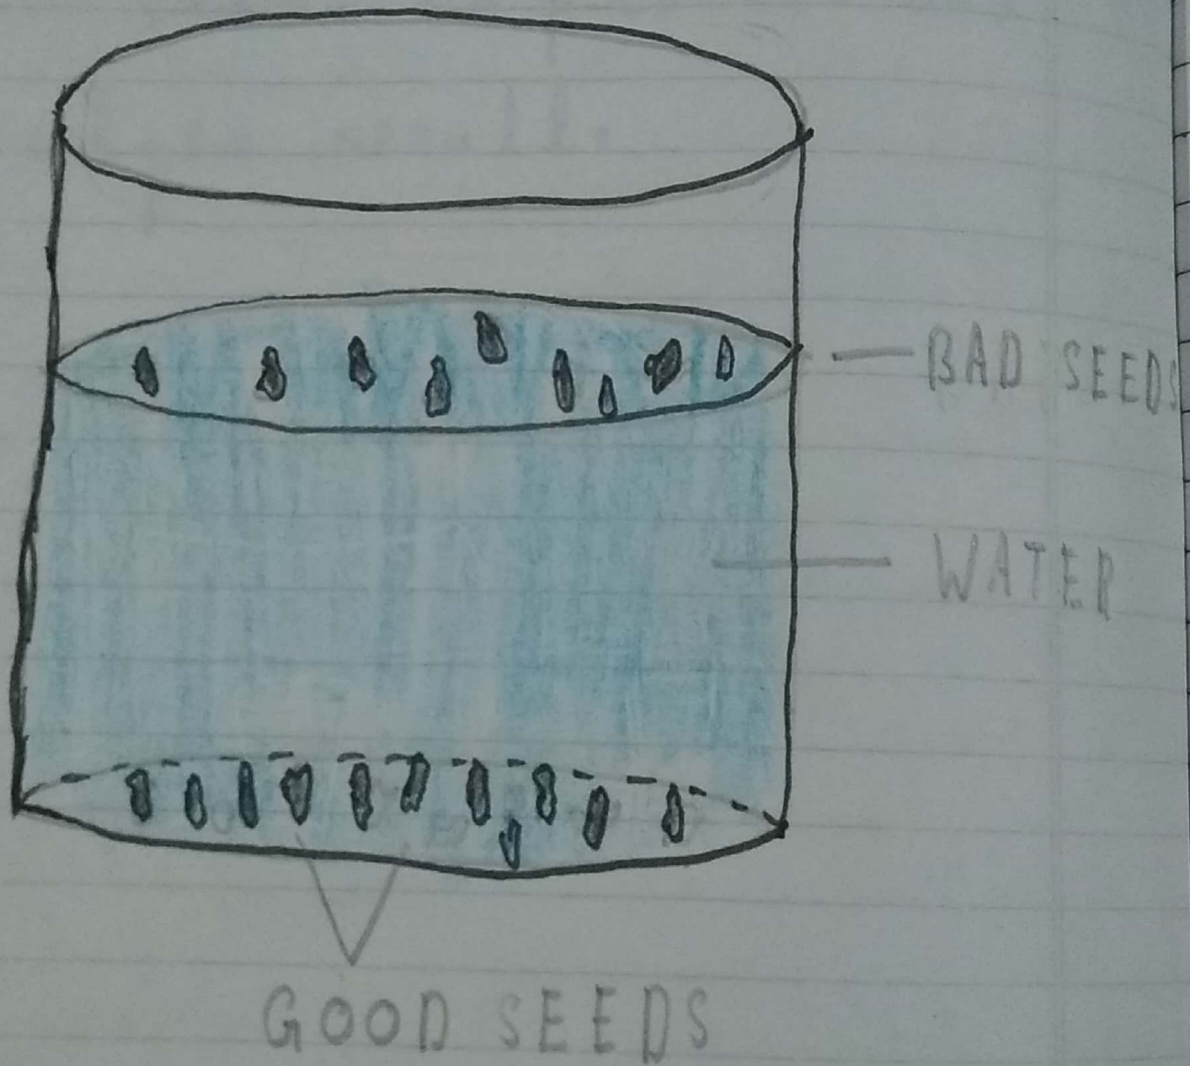 BAD SEEDS
WATER
GOOD SEEDS